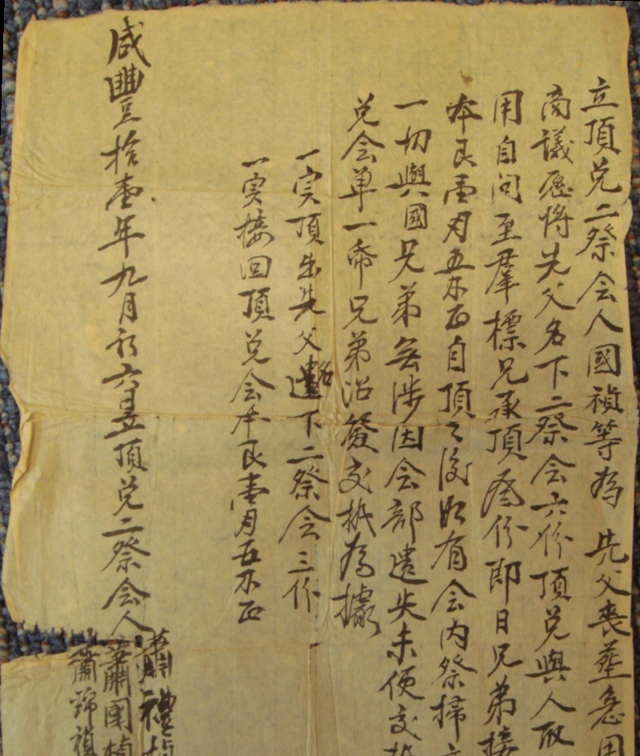 立頂兑二祭会人國禎等為 先父喪塟急用
商議愿將先父名下二祭会六份頂兑與人取
用自问至羣標兄承頂 份即日兄弟接
本艮壹刄五不正自頂之後如有会内祭掃
一切與國兄弟無涉因会部遺失未便交
兑会单一帋兄弟沿發交抵為據
一实頂出先父名遺下二祭会三份
一实接回頂兑会本艮壹月五不正
咸豐拾壹年九月初六日立頂兑二祭会人
蕭禮
蕭國禎
蕭錦禎